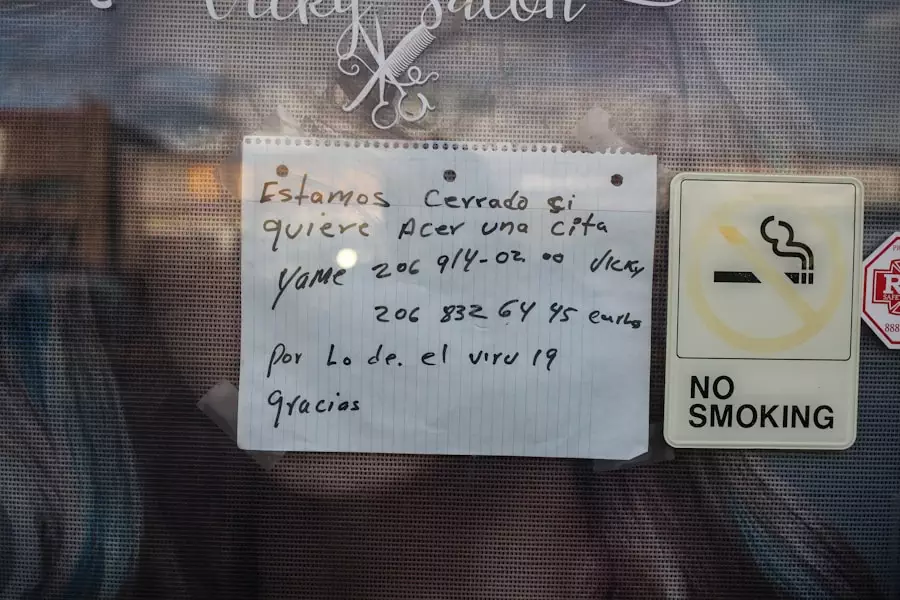 Vicky Salon
Estamos Cerrado si
quiere Acer una cita
Yame 206 914-02 00 Vicky
206 832 64 45 carlos
por Lo de. el viru 19
gracias
NO
SMOKING
R
888